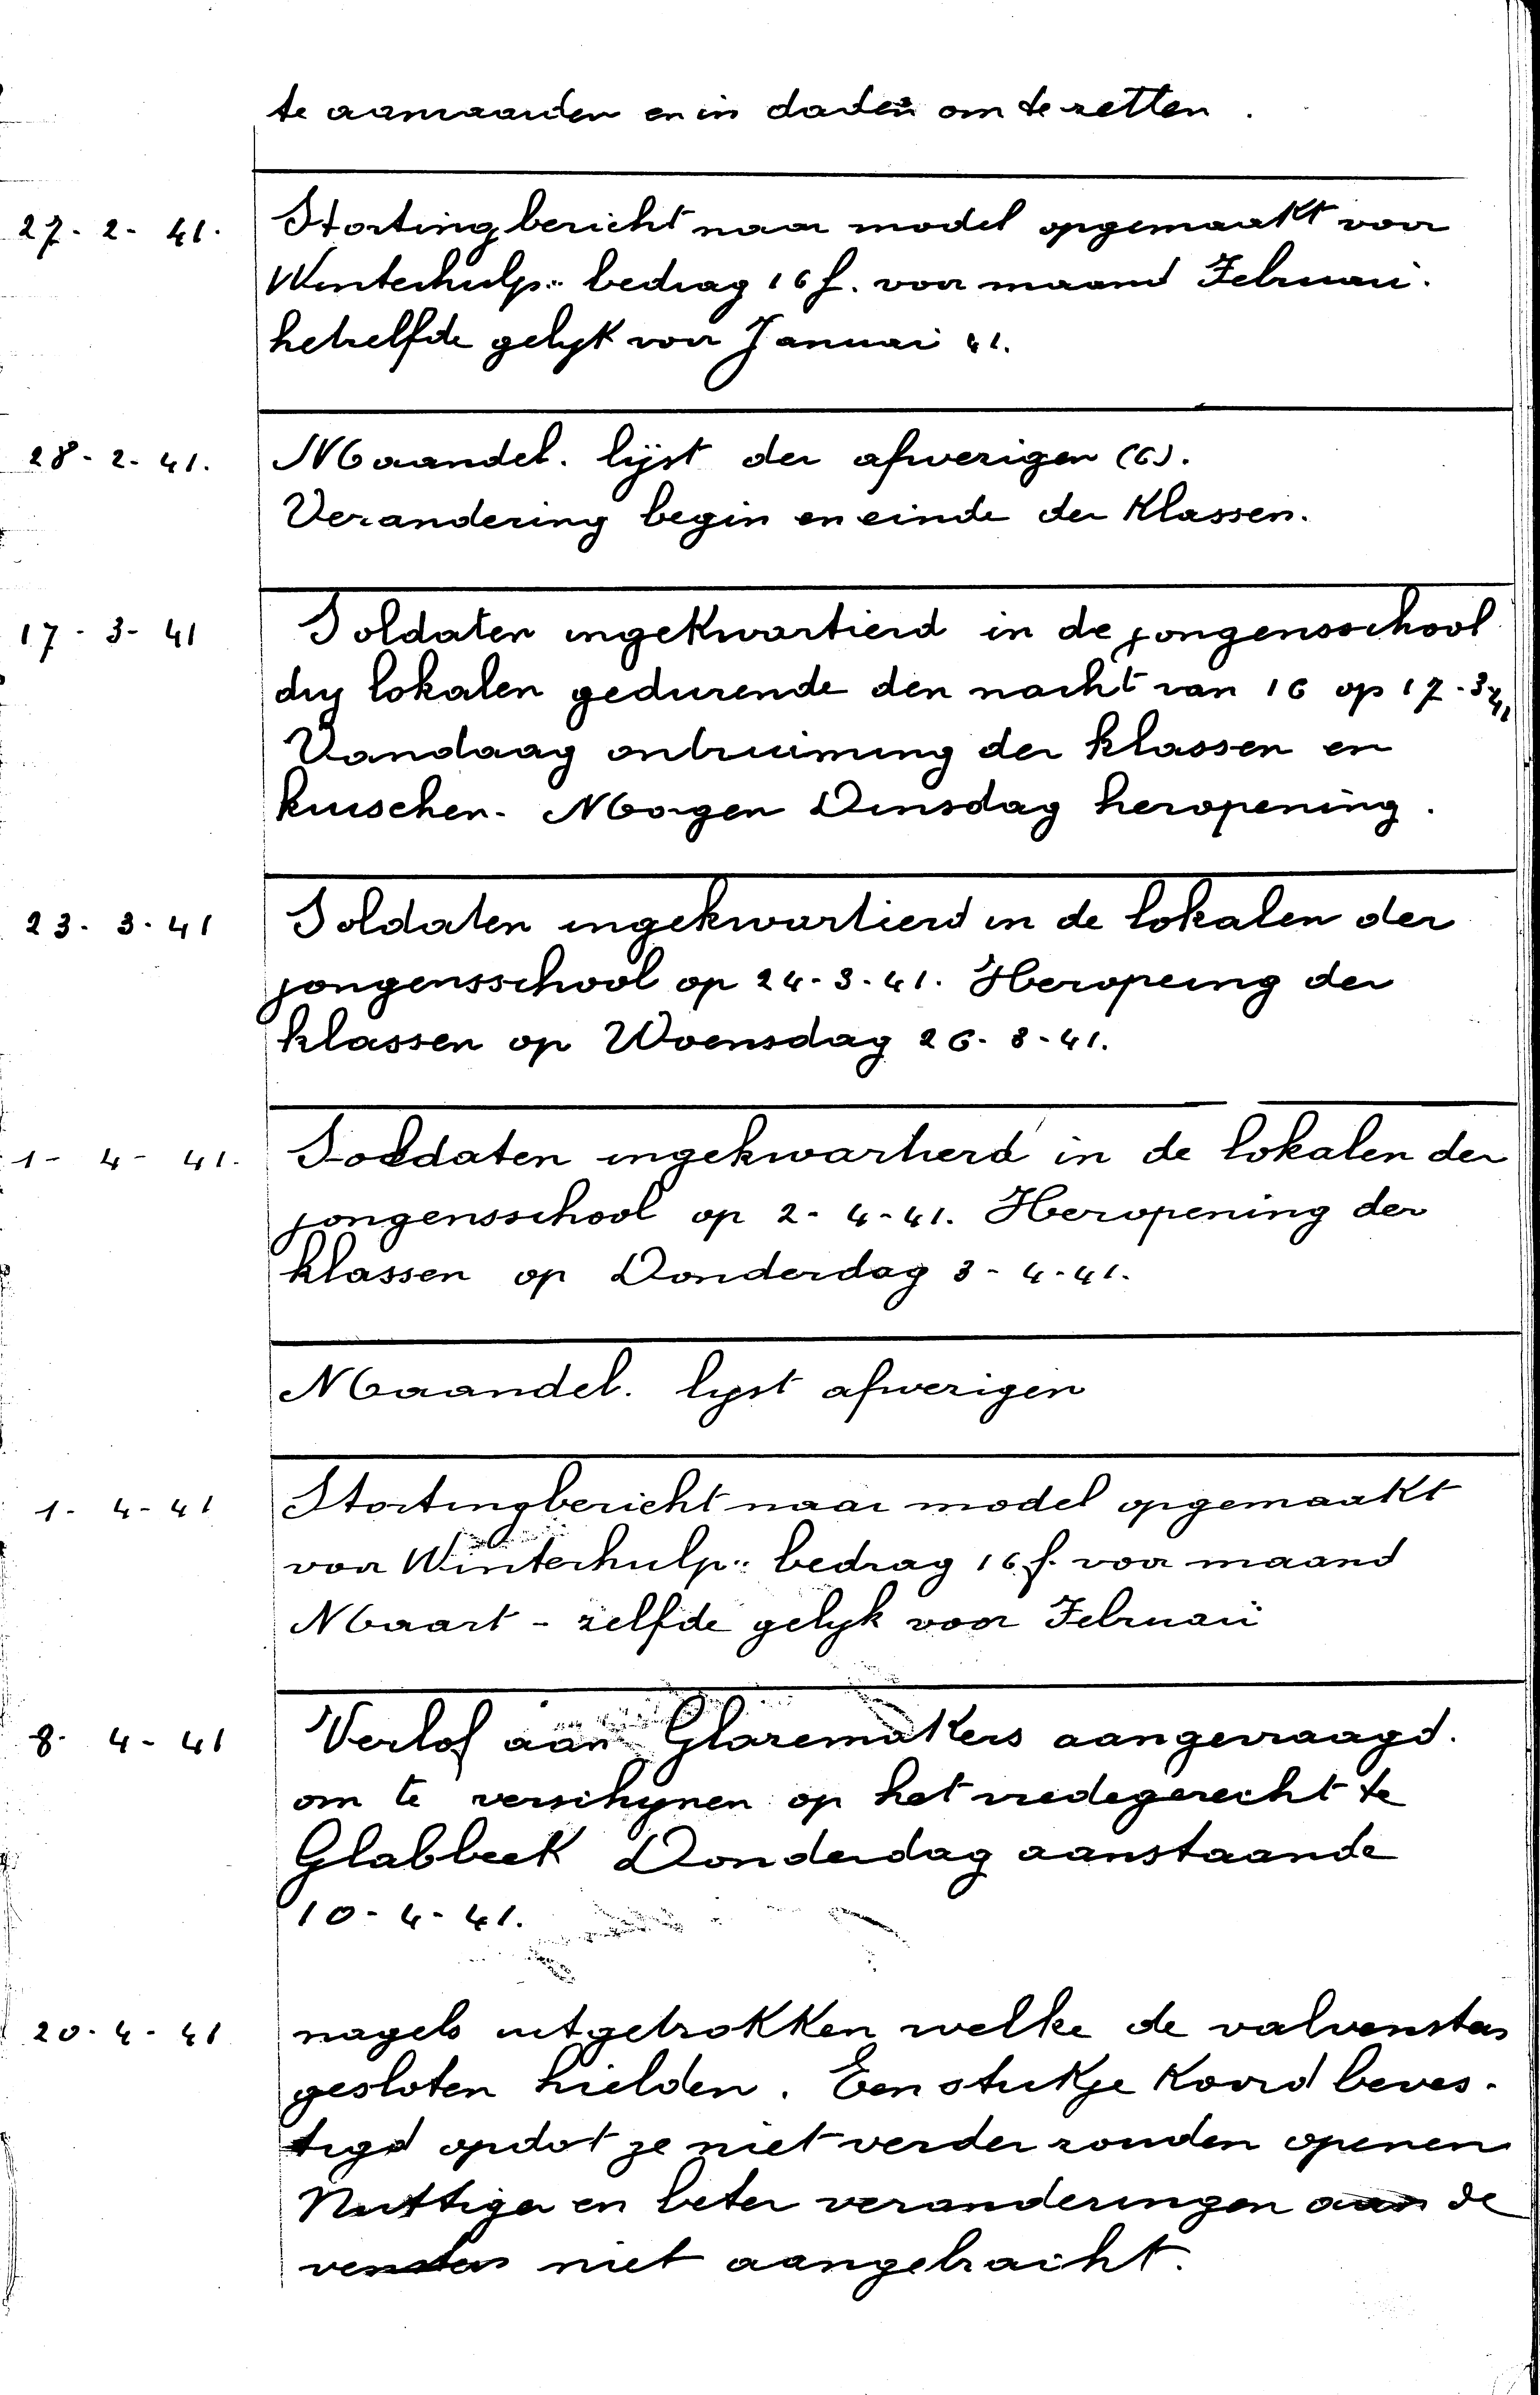 te aanvaarden en in daden om te zetten.
27-2-41. Stortingbericht naar model opgemaakt voor
Winterhulp.. bedrag 16 f. voor maand Februari.
hetzelfde gelijk voor Januari 41.
28-2-41. Maandel. lijst der afwezigen (6).
Verandering begin en einde der Klassen.
17-3-41 Soldaten ingekwartierd in de jongensschool
dry lokalen gedurende den nacht van 16 op 17-3-41
Vandaag ontruiming der klassen en
kuischen. Morgen Dinsdag heropening.
23-3-41 Soldaten ingekwartierd in de lokalen der
jongensschool op 24-3-41. Heropeing der
klassen op Woensdag 26-3-41.
1-4-41. Soldaten ingekwartierd in de lokalen der
jongensschool op 2-4-41. Heropening der
klassen op Donderdag 3-4-41.
Maandel. lyst afwezigen
1-4-41 Stortingbericht naar model opgemaakt
voor Winterhulp.. bedrag 16 f. voor maand
Maart - zelfde gelyk voor Februari
8-4-41 Verlof aan Glazemakers aangevraagd.
om te verschynen op het vredegerecht te
Glabbeek Donderdag aanstaande
10-4-41.
20-4-41 nagels uitgetrokken welke de valvensters
gesloten hielden. Een stukje Koord beves-
tigd opdat ze niet verder zouden openen
Nuttiger en beter veranderingen aan de
vensters niet aangebracht.